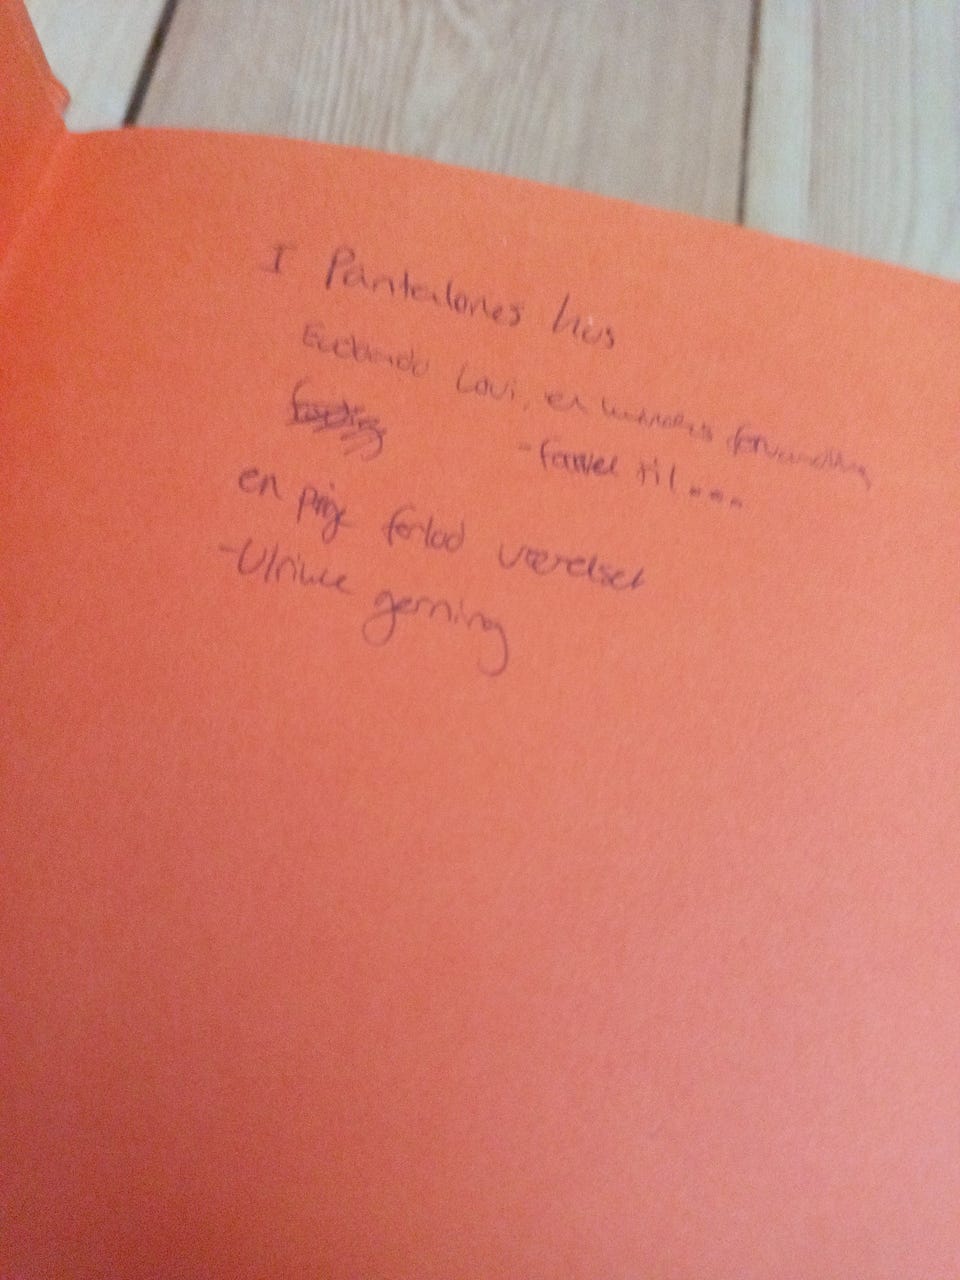 I Pantalones hus
Lovi, en forvandling
- farvel til...
en pige forlod værelset
- Ulrikke gerning